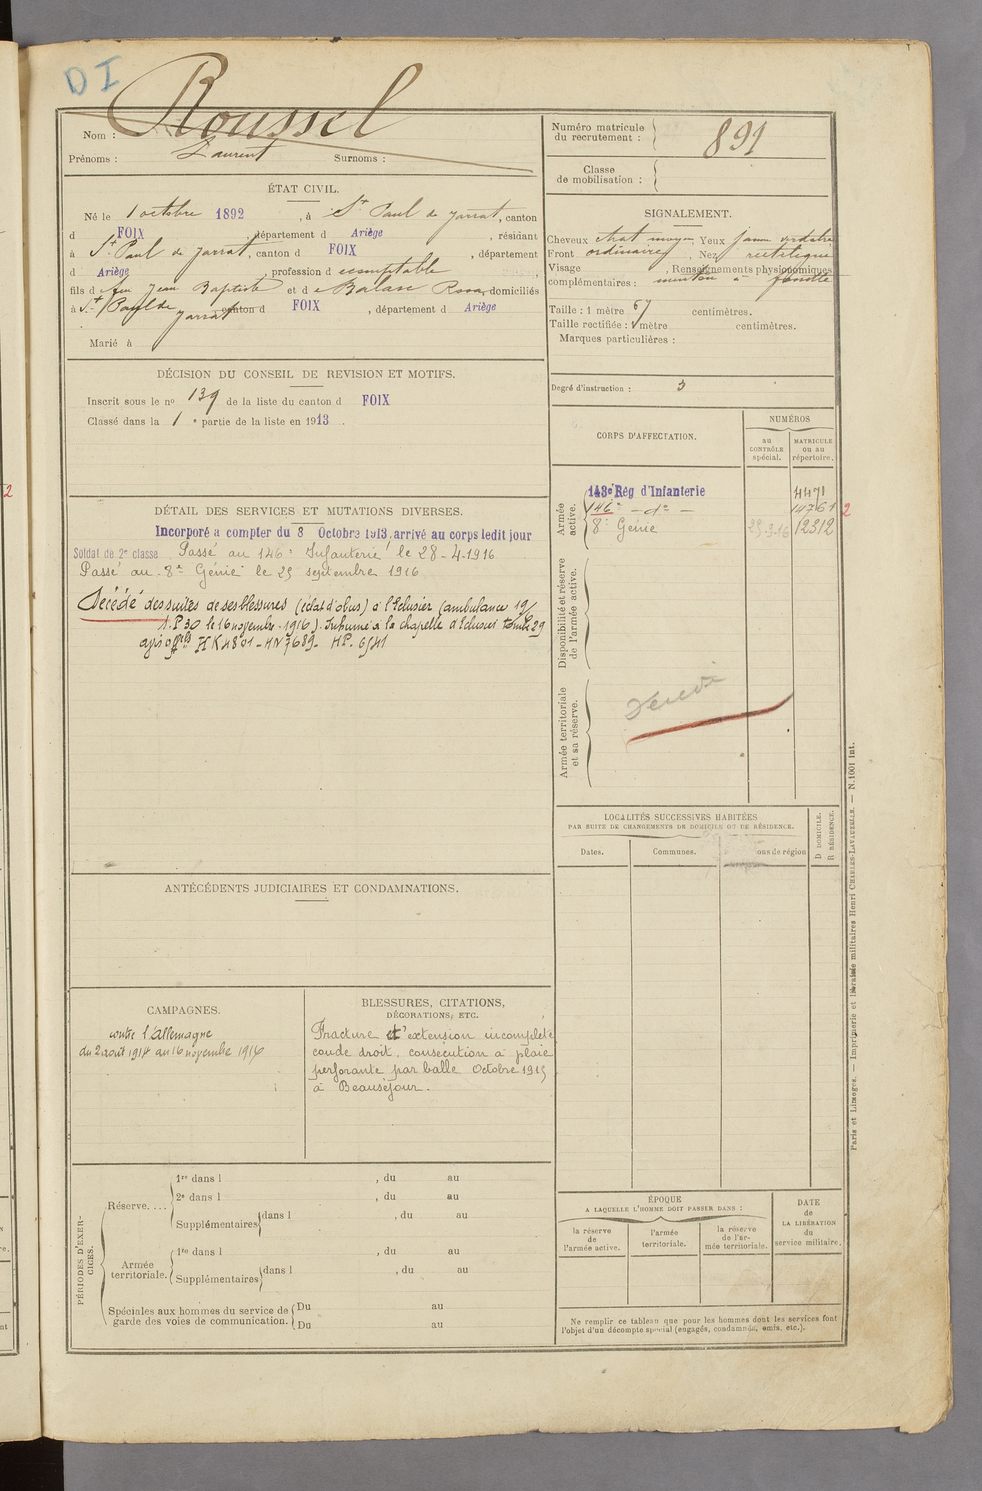 DI
Nom : Roussel
Prénoms : Laurent Surnoms :
Numéro matricule du recrutement : 891
Classe de mobilisation :
ÉTAT CIVIL.
Né le 1 octobre 1892, à St Paul de Jarrat, canton
d FOIX, département d Ariège, résidant
à St Paul de Jarrat, canton d FOIX, département
d Ariège, profession d ecomptable
fils d e feu Jean Baptiste et d e Balase Rosa, domiciliés
à St Paul de Jarrat canton d FOIX, département d Ariège
Marié à
SIGNALEMENT.
Cheveux chat moyen Yeux jaune verdatre
Front ordinaire, Nez rectiligne
Visage , Renseignements physionomiques
complémentaires : menton à fossette
Taille : 1 mètre 67 centimètres.
Taille rectifiée : 1 mètre centimètres.
Marques particulières :
Degré d'instruction : 3
DÉCISION DU CONSEIL DE REVISION ET MOTIFS.
Inscrit sous le no 139 de la liste du canton d FOIX
Classé dans la 1e partie de la liste en 1913.
CORPS D'AFFECTATION.
NUMÉROS
au CONTRÔLE spécial.
MATRICULE ou au répertoire.
Armée active.
143e Rég d'Infanterie 4471
146e - do - 14761 2
8e Génie 25-9-16 12312
Disponibilité et réserve de l'armée active.
Armée territoriale et sa réserve.
DÉTAIL DES SERVICES ET MUTATIONS DIVERSES.
Incorporé a compter du 8 Octobre 1913. arrivé au corps ledit jour
Soldat de 2e classe Passé au 146e Infanterie le 28-4-1916
Passé au 8e Génie le 25 septembre 1916
Décédé des suites de ses blessures (éclat d'obus) à l'Eclusier (ambulance 19/
1. P 30 le 16 novembre 1916). Inhumé à la chapelle d'Eclusier tombe 29
avis officiels HK 4801 - HN 7689 - HP. 6541
LOCALITÉS SUCCESSIVES HABITÉES
PAR SUITE DE CHANGEMENTS DE DOMICILE OU DE RÉSIDENCE.
Dates.
Communes.
ons de région
D DOMICILE.
R RÉSIDENCE.
ANTÉCÉDENTS JUDICIAIRES ET CONDAMNATIONS.
CAMPAGNES.
contre l'allemagne
du 2 août 1914 au 16 novembre 1916
BLESSURES, CITATIONS,
DÉCORATIONS, ETC.
Fracture et extension incomplète
coude droit, consécution à plaie
perforante par balle Octobre 1915
à Beauséjour.
PÉRIODES D'EXERCICES.
Réserve....
1re dans l , du au
2e dans l , du au
Supplémentaires dans l , du au
Armée territoriale.
1re dans l , du au
Supplémentaires dans l , du au
Spéciales aux hommes du service de garde des voies de communication.
Du au
Du au
ÉPOQUE
A LAQUELLE L'HOMME DOIT PASSER DANS :
la réserve de l'armée active.
l'armée territoriale.
la réserve de l'armée territoriale.
DATE de LA LIBÉRATION du service militaire.
Ne remplir ce tableau que pour les hommes dont les services font
l'objet d'un décompte spécial (engagés, condamnés, omis, etc.).
Paris et Limoges. — Imprimerie et librairie militaires Henri CHARLES-LAVAUZELLE. — N.1001 int.
2